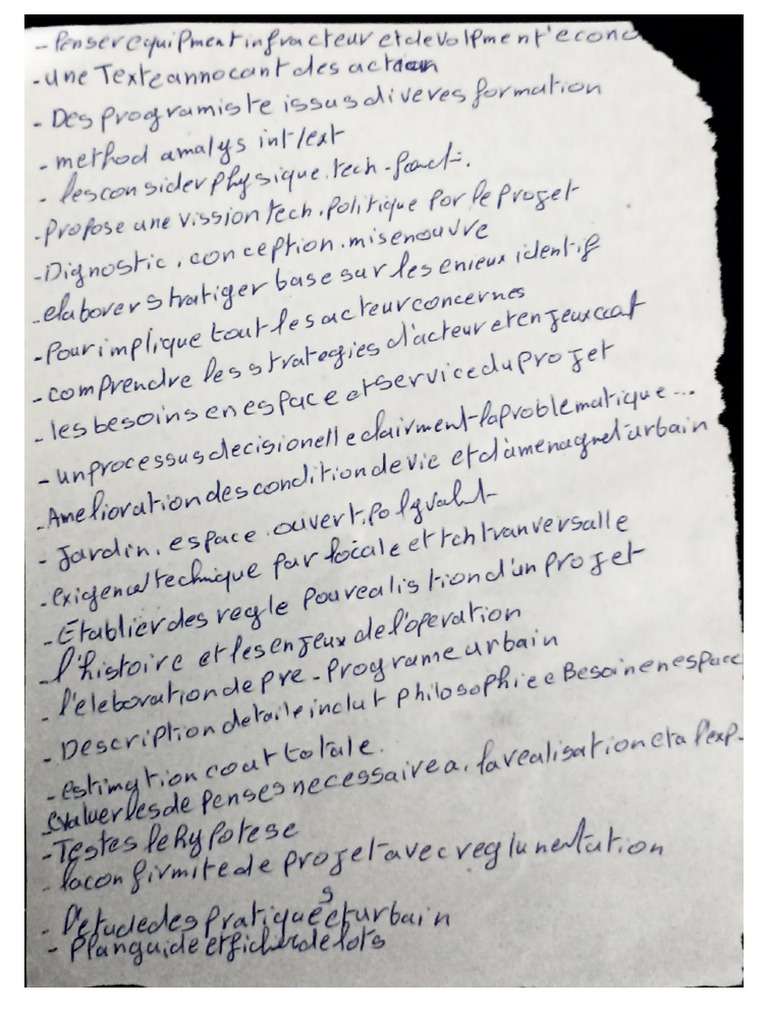 - Penser equipment infracteur et devolpment 'econo
- une Texte annocant des action
- Des programiste issus diveres formation
- method analys int/ext
- les consider physique.tech-fonct-.
- Propose une vission tech.politique por le projet
- Dignostic, conception.misenouvre
- elaborer stratiger base sur les enieux identif
- Pour implique tout les acteur concernes
- comprendre les strategies d'acteur et enjeux
- les besoins en espace et service du projet
- un processus decisionell eclairment la problematique...
- Amelioration des condition de vie et d'amenagnet urbain
- Jardin.espace.ouvert.polyvalnt
- exigence technique par focale et tch tranversalle
- Etablier des regle pour realistion d'un projet
- l'histoire et les enjeux de l'operation
- l'eleboration de pre-programe urbain
- Description detaile inclut philosophie e Besoin en espace
- estimation cour totale.
- evaluer les depenses necessaire a.la realisation et a l'exp-
- Testes le hypotese
- la confirmite de projet avec reglumentation
- l'etude des pratiques et urbain
- Plan guide et fichier de lots